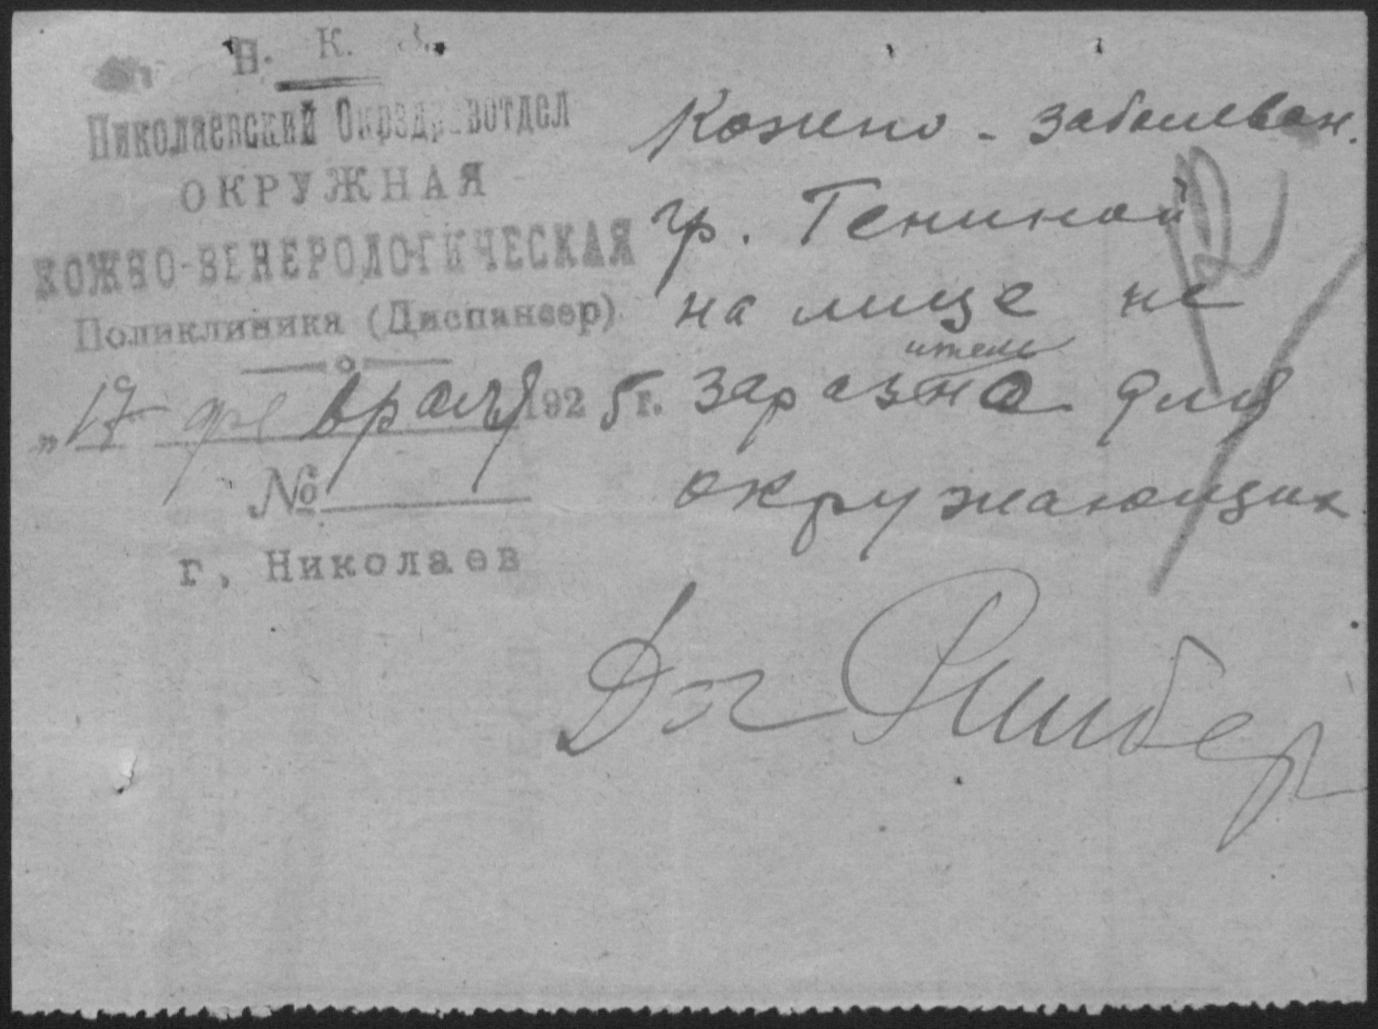 Н. К. З.
Николаевский Окрздравотдел
ОКРУЖНАЯ
КОЖНО-ВЕНЕРОЛОГИЧЕСКАЯ
Поликлиника (Диспансер)
„17 февраля 1925 г.
№
г. Николаев
Кожно-заболеван.
гр. Гениной
на лице не
ительно
заразна для
окружающих